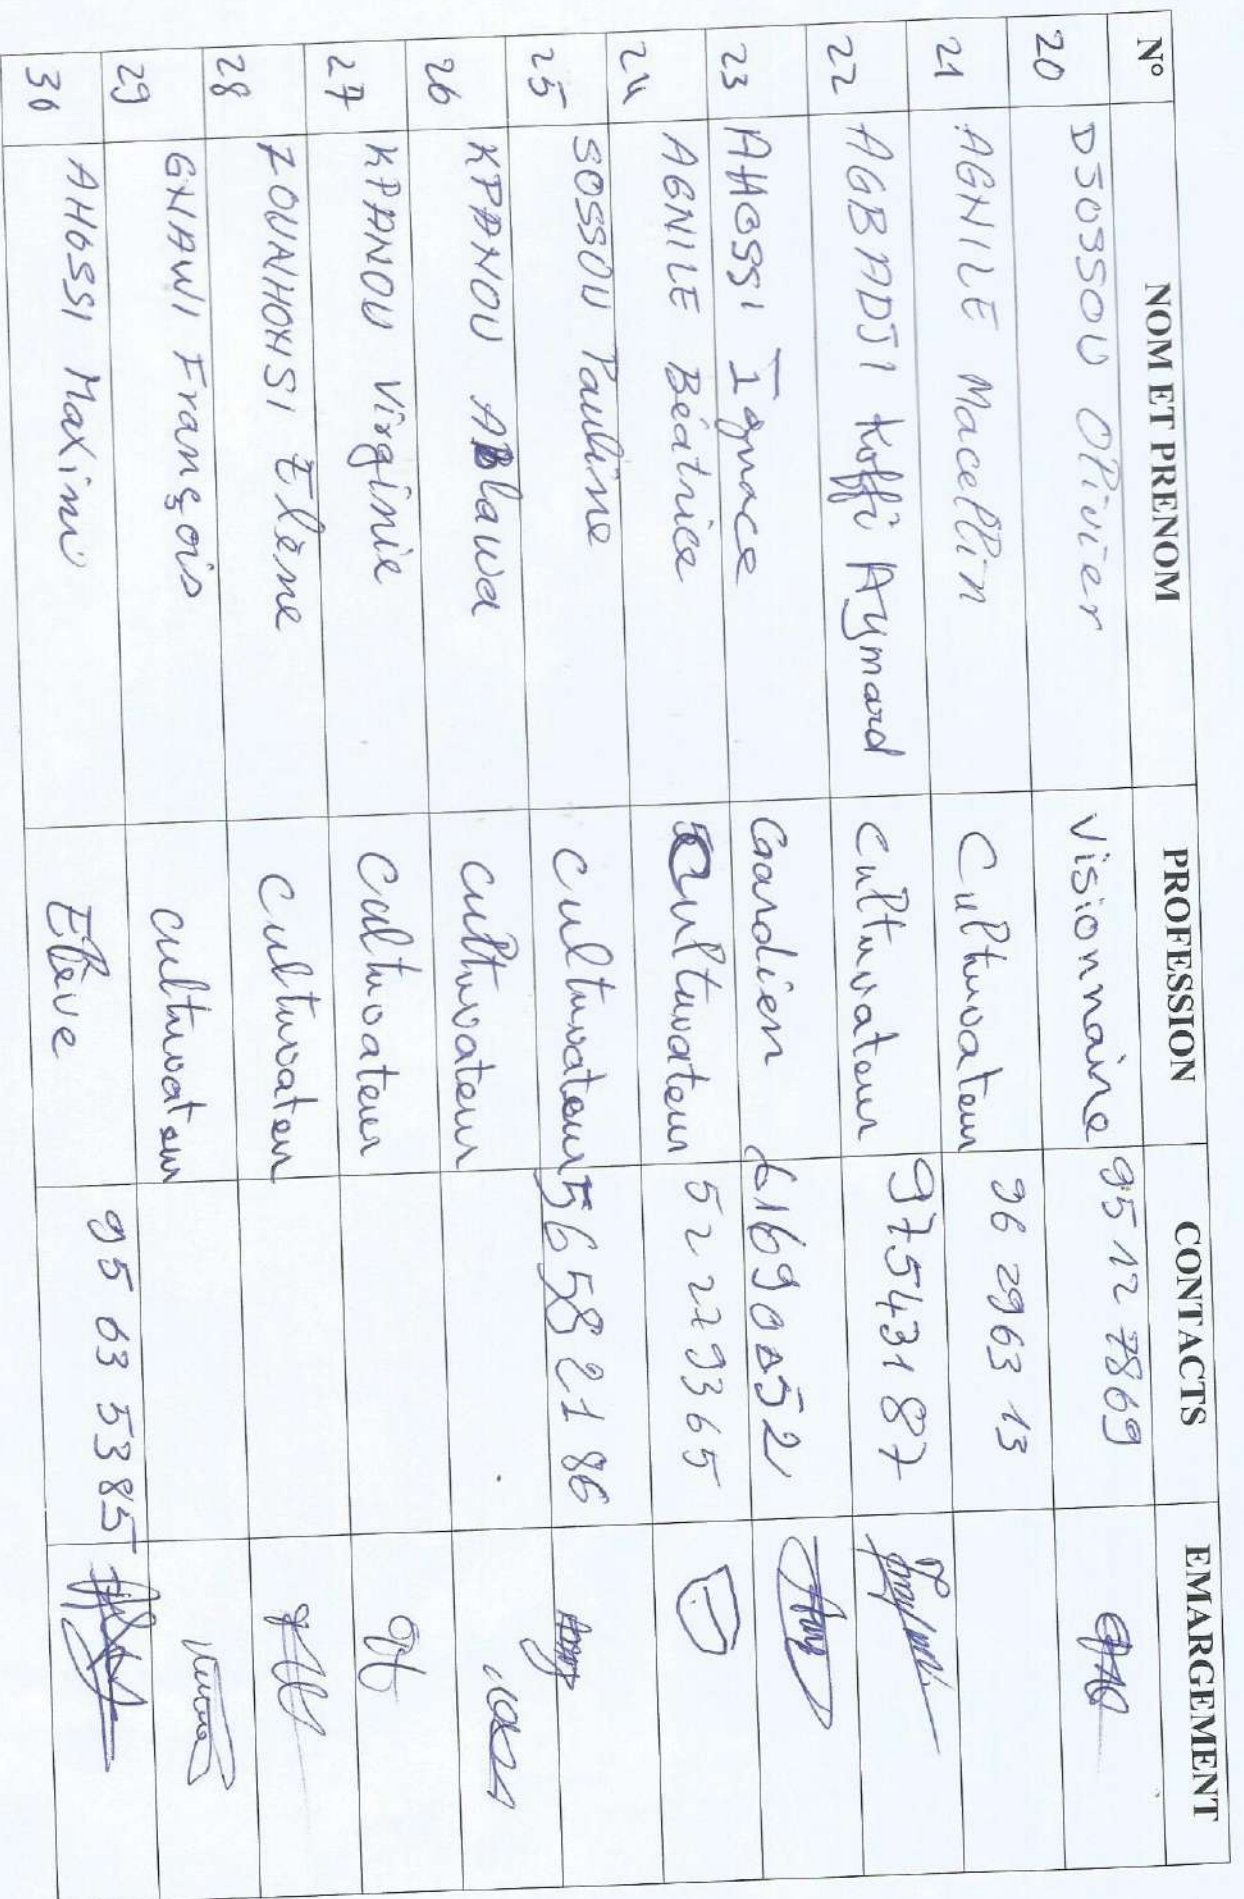 N° NOM ET PRENOM PROFESSION CONTACTS EMARGEMENT
20 DJOSSOU Olivier Visionnaire 95 12 7869
21 AGNILE Macellin Cultivateur 96 2963 13
22 AGBADJI Koffi Aymard Cultivateur 97543187
23 AHOSSI Ignace Gardien
24 AGNILE Béatrice Cultivateur 52279365
25 SOSSOU Pauline Cultivateur 56582186
26 KPANOU ABlawa Cultivateur
27 KPANOU Virginie Cultivateur
28 ZOUNHONSI Elène Cultivateur
29 GNAWI François Cultivateur
30 AHOSSI Maxim Elève 95 63 5385